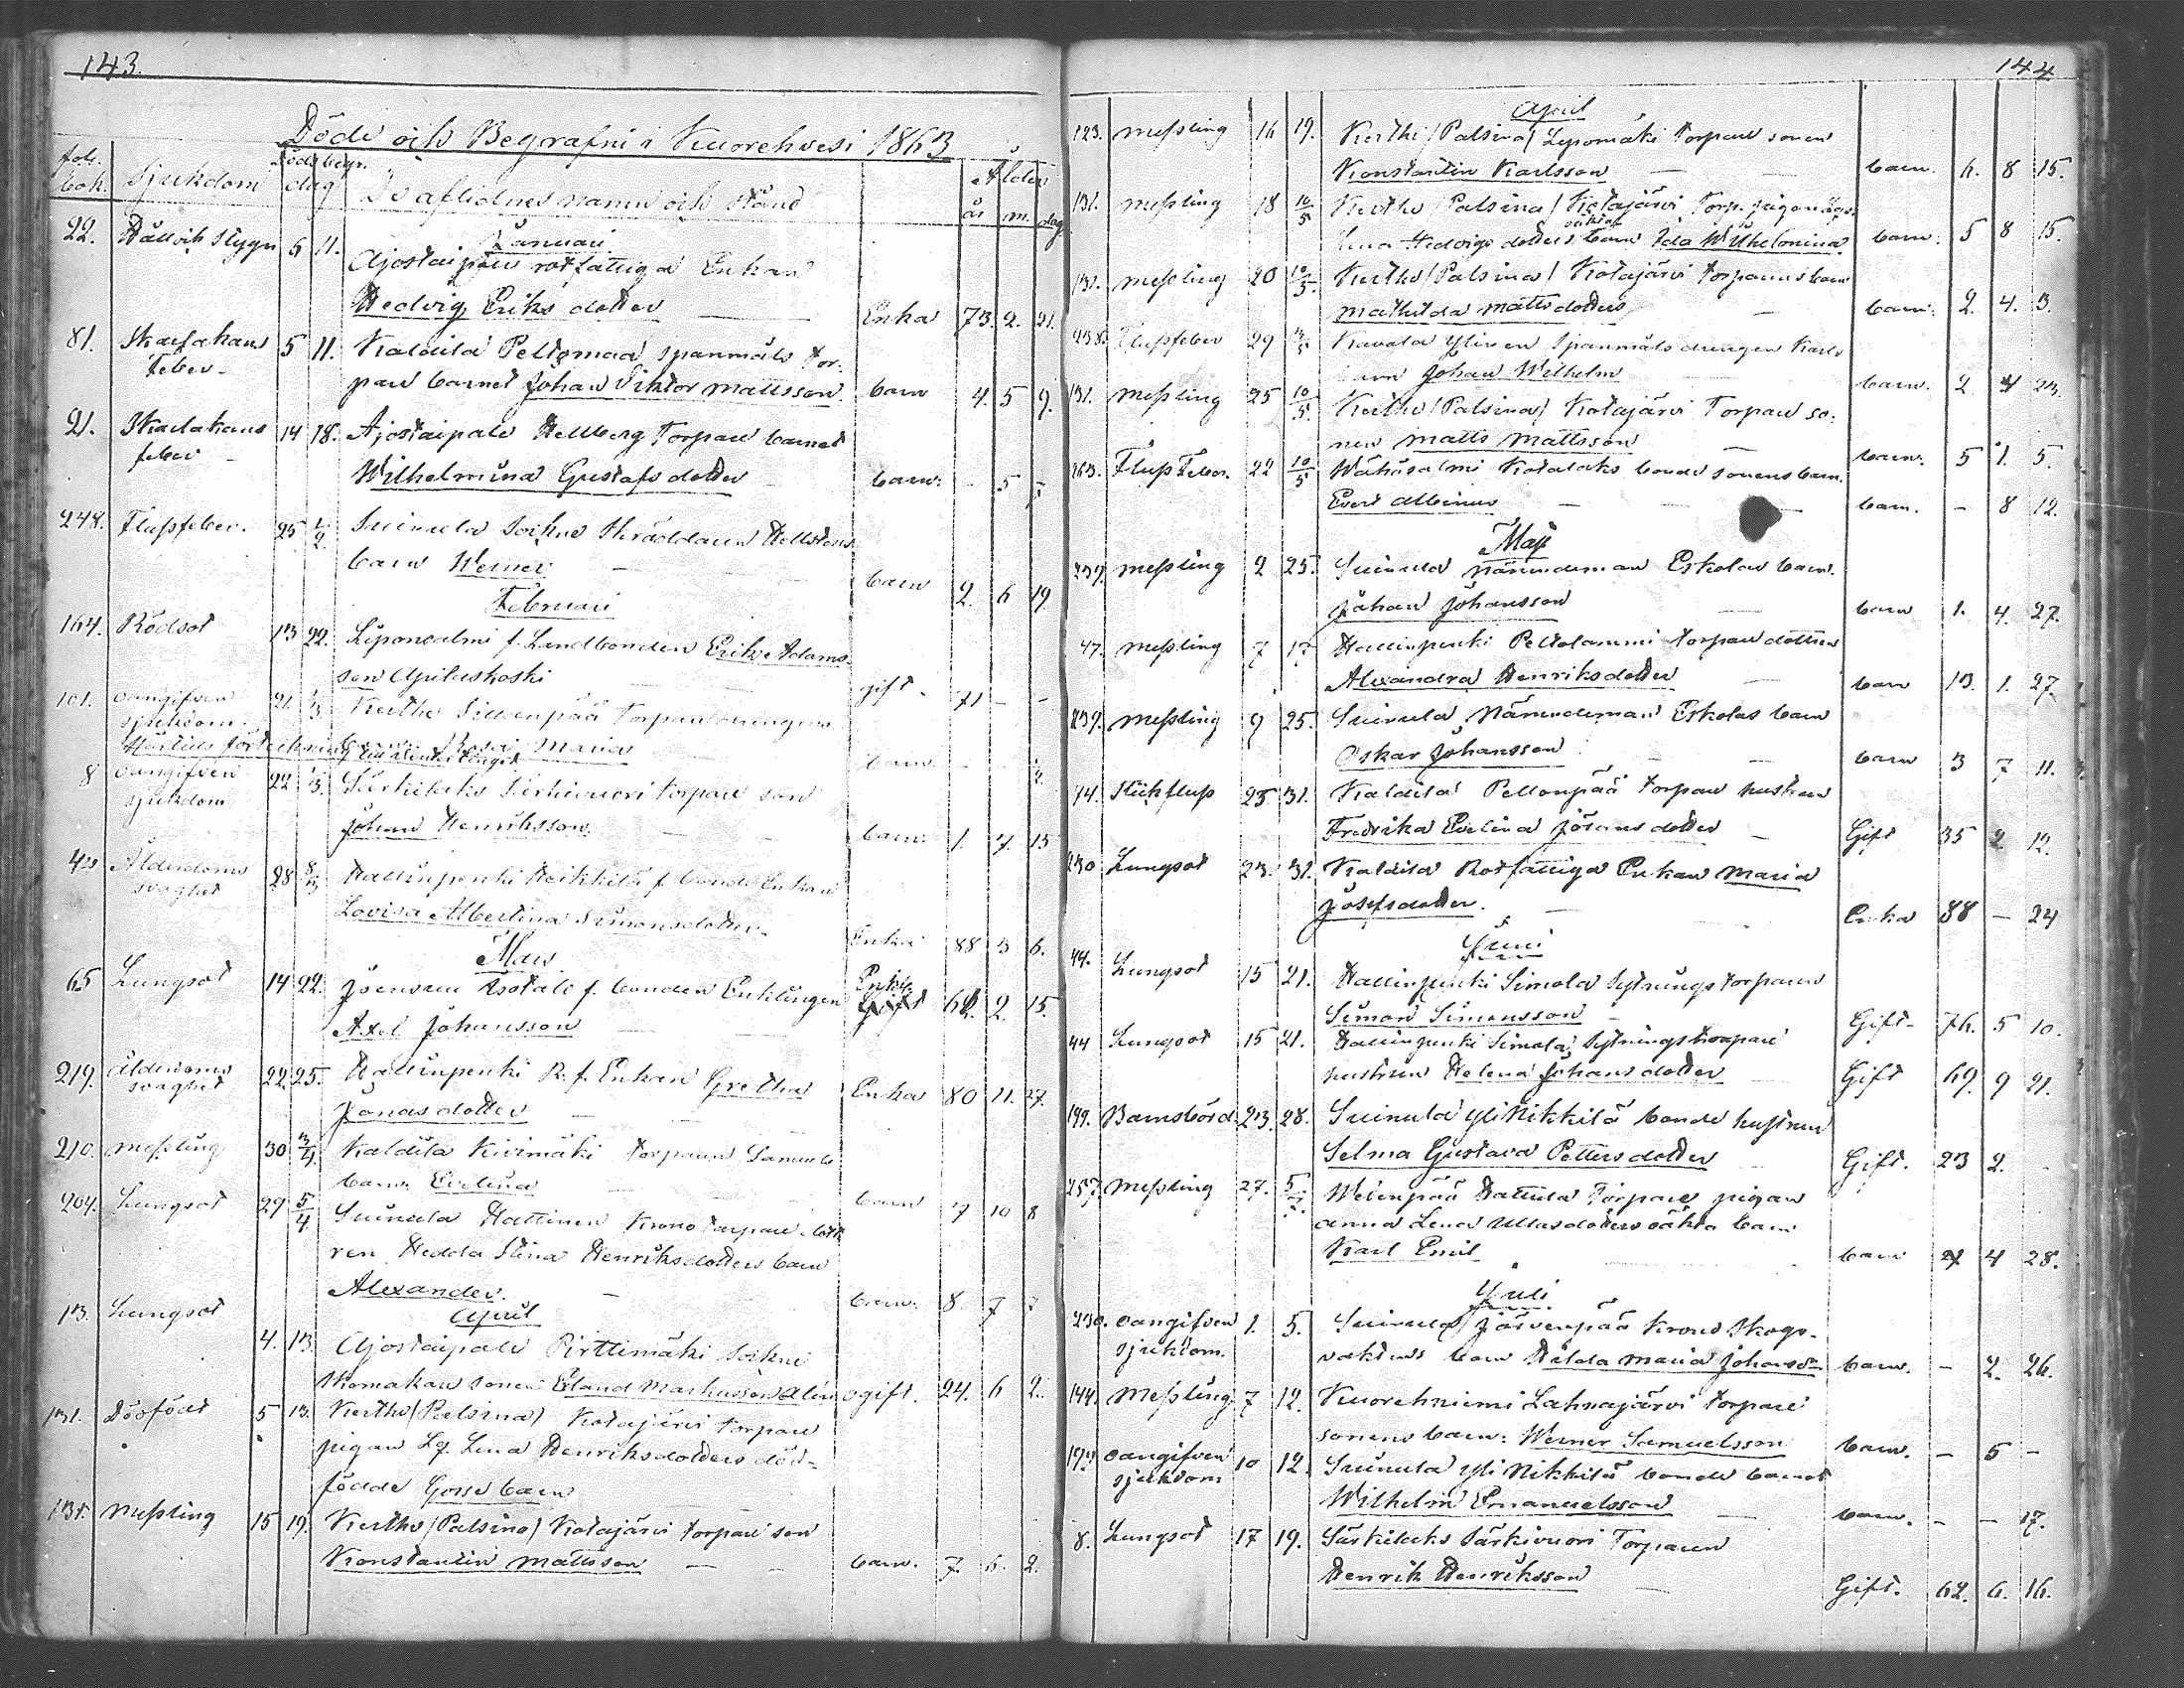 143.
Döde och Begrafne i Kuorehvesi 1863
fol. bok. Sjukdom Död. begr. dag De aflidnes namn och stånd Ålder år m. dag
Januari
22. Håll och Stygn 6 11. Ajostaipale rotfattiga Enkan
Hedvig Eriks dotter Enka 73. 2. 21.
81. Skarlakans 5 11. Kaldila Peltomaa spanmåls tor-
Feber
par barnet Johan Viktor Mattsson. barn 4. 5 9.
21. Skarlakans 14 18. Ajostaipale Hellberg Torpare barnet
feber
Wilhelmina Gustafs dotter barn. - 5
248. Flussfeber. 25 Suinula Sockne Hellstens
barn Werner barn 2. 6 19
Februari
164. Rödsot 13 22. Liponsalmi f. Landbonden Erik Adams-
son gift. 71 - -
101. oangifven 21. Kertho Torpare
sjukdom
barn Rosa Maria barn
8 oangifven 22 Särkilaks Särkivuori torpare son
sjukdom
Johan Henriksson. barn. 1. 7. 15
Ålderdoms 28 8/3 Hallinpenki Heikkilä f. bonde Enkan
svaghet
Lovisa Albertina Simonsdotter. Enka 88 3 6.
Mars
65 Lungsot 14 22. Joensuu Isotalo f. bonden Enklingen Enkl.
Axel Johansson 2. 15.
219. Ålderdoms 22 25. Hallinpenki R. f. Enkan Gretha Enka 80 11. 27.
svaghet
Jonas dotter
210. Messling 30 3/4 Kaldila Kivimäki torparen Samuels
barn Evelina barn 7 10 8
204. Lungsot 29 5/4 Suinula Hattinen Krono torpare dott
ren Hedda Stina Henriksdotters barn
Alexander. barn. 8. 7 7
April
13. Lungsot 4. 13. Ajostaipale Pirttimäki Sockne
Skomakare sonen Erland Markusson Alin ogift. 24. 6 2.
131. Dödfödt 5 13. Kertho (Palsina) Kotajärvi torpare
pigan Lg. Lena Henriksdotters död-
födde Gosse barn
131. Messling 15 19. Kertho (Palsina) Kotajärvi torpare son
Konstantin Mattsson barn. 7. 6. 2.
144
April
123. Messling 16 19. Kertho (Palsina) Lepomäki Torpare sonen
Konstantin Karlsson barn. 6. 8 15.
131. Messling 18 10/5 Kertho (Palsina) Kotajärvi Torp. pigan
oäkta
Lena Hedvigs dotters barn Ida Wilhelmina barn. 5 8 15.
131. Messling 20 10/5. Kertho (Palsina) Kotajärvi Torparens barn
Mathilda Mattsdotter barn. 2. 4. 3.
238. Flussfeber 29 Kavala Ylinen Spanmåls drengen Karls
barn Johan Wilhelm barn. 2 4 23.
131. Messling 25 10/5. Kertho (Palsina) Kotajärvi Torpare so-
nen Matts Mattsson barn. 5 1. 5.
263. Fluss Feber. 22 10/5 Wähäsalmi Kotalaks bonde sonens barn.
Evert Albinus barn. - 8 12.
Maj
239. Messling 2 25. Suinula Nämndeman Eskolas barn.
Johan Johansson barn 1. 4. 27.
47. Messling 7 17 Hallinpenki Peltolammi torpare dottren
Alexandra Henriksdotter barn 13. 1. 27
239. Messling 9 25. Suinula Nämndeman Eskolas barn
Oskar Johansson barn 3 7 11.
74. Stickfluss 25 31. Kaldila Pellonpää torpare hustrun
Fredrika Evelina Johans dotter Gift 35 2 12.
230 Lungsot 23. 31. Kaldila Rotfattiga Enkan Maria
Josefsdotter. Enka 88 - 24
Juni
44. Lungsot 15 21. Hallinpenki Simola Sytnings torparen
Simon Simonsson Gift. 76. 5 10.
44 Lungsot 15 21. Hallinpenki Simola Sytningstorpare
hustrun Helena Johans dotter Gift 69. 9 21.
199. Barnsbörd. 23. 28. Suinula Yli Nikkilä bonde hustrun
Selma Gustava Petters dotter Gift. 23 2. -
257. Messling 27. 5/7. Wehenpää Hattula Torpare pigan
Anna Lena Ullasdotters oäkta barn
Karl Emil barn 4 28.
Juli
230. oangifven 1. 5. Suinula Järvenpää Krono Skogs-
sjukdom.
vaktens barn Hilda Maria Johansdr barn. - 2. 26.
144. Messling 7 12. Kuorehniemi Lahnajärvi torpare
sonens barn: Werner Samuelsson barn. - 5 -
199 oangifven 10 12. Suinula Yli Nikkilä bonde barnet
sjukdom
Wilhelm Emanuelsson barn. - - 17.
8. Lungsot 17 19. Särkilaks Särkivuori Torparen
Henrik Henriksson Gift. 62. 6. 16.